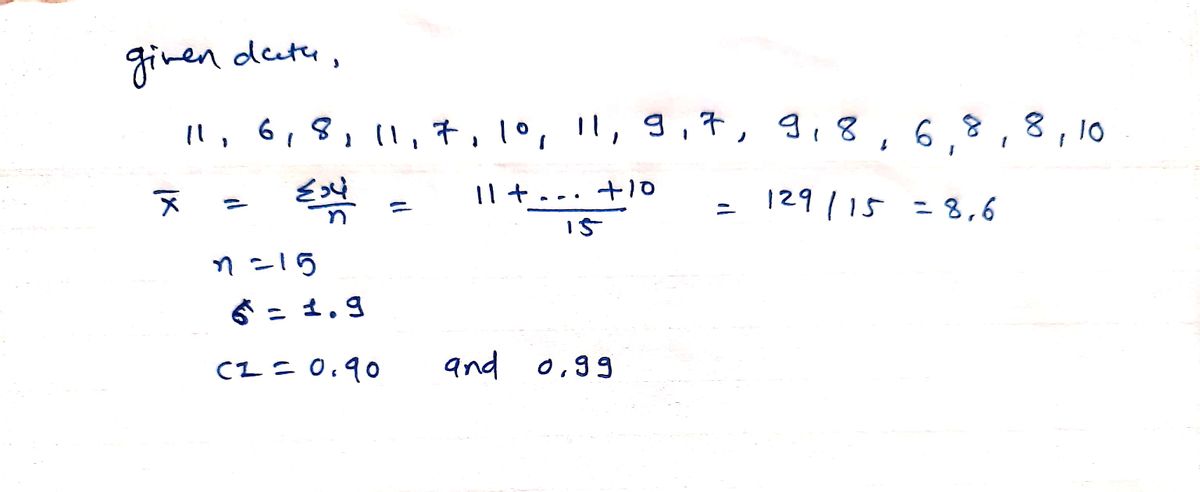 given data,
11, 6, 8, 11, 7, 10, 11, 9, 7, 9, 8, 6, 8, 8, 10
x̄ = Σxi/n = 11+...+10/15 = 129/15 = 8.6
n = 15
σ = 1.9
CI = 0.90 and 0.99